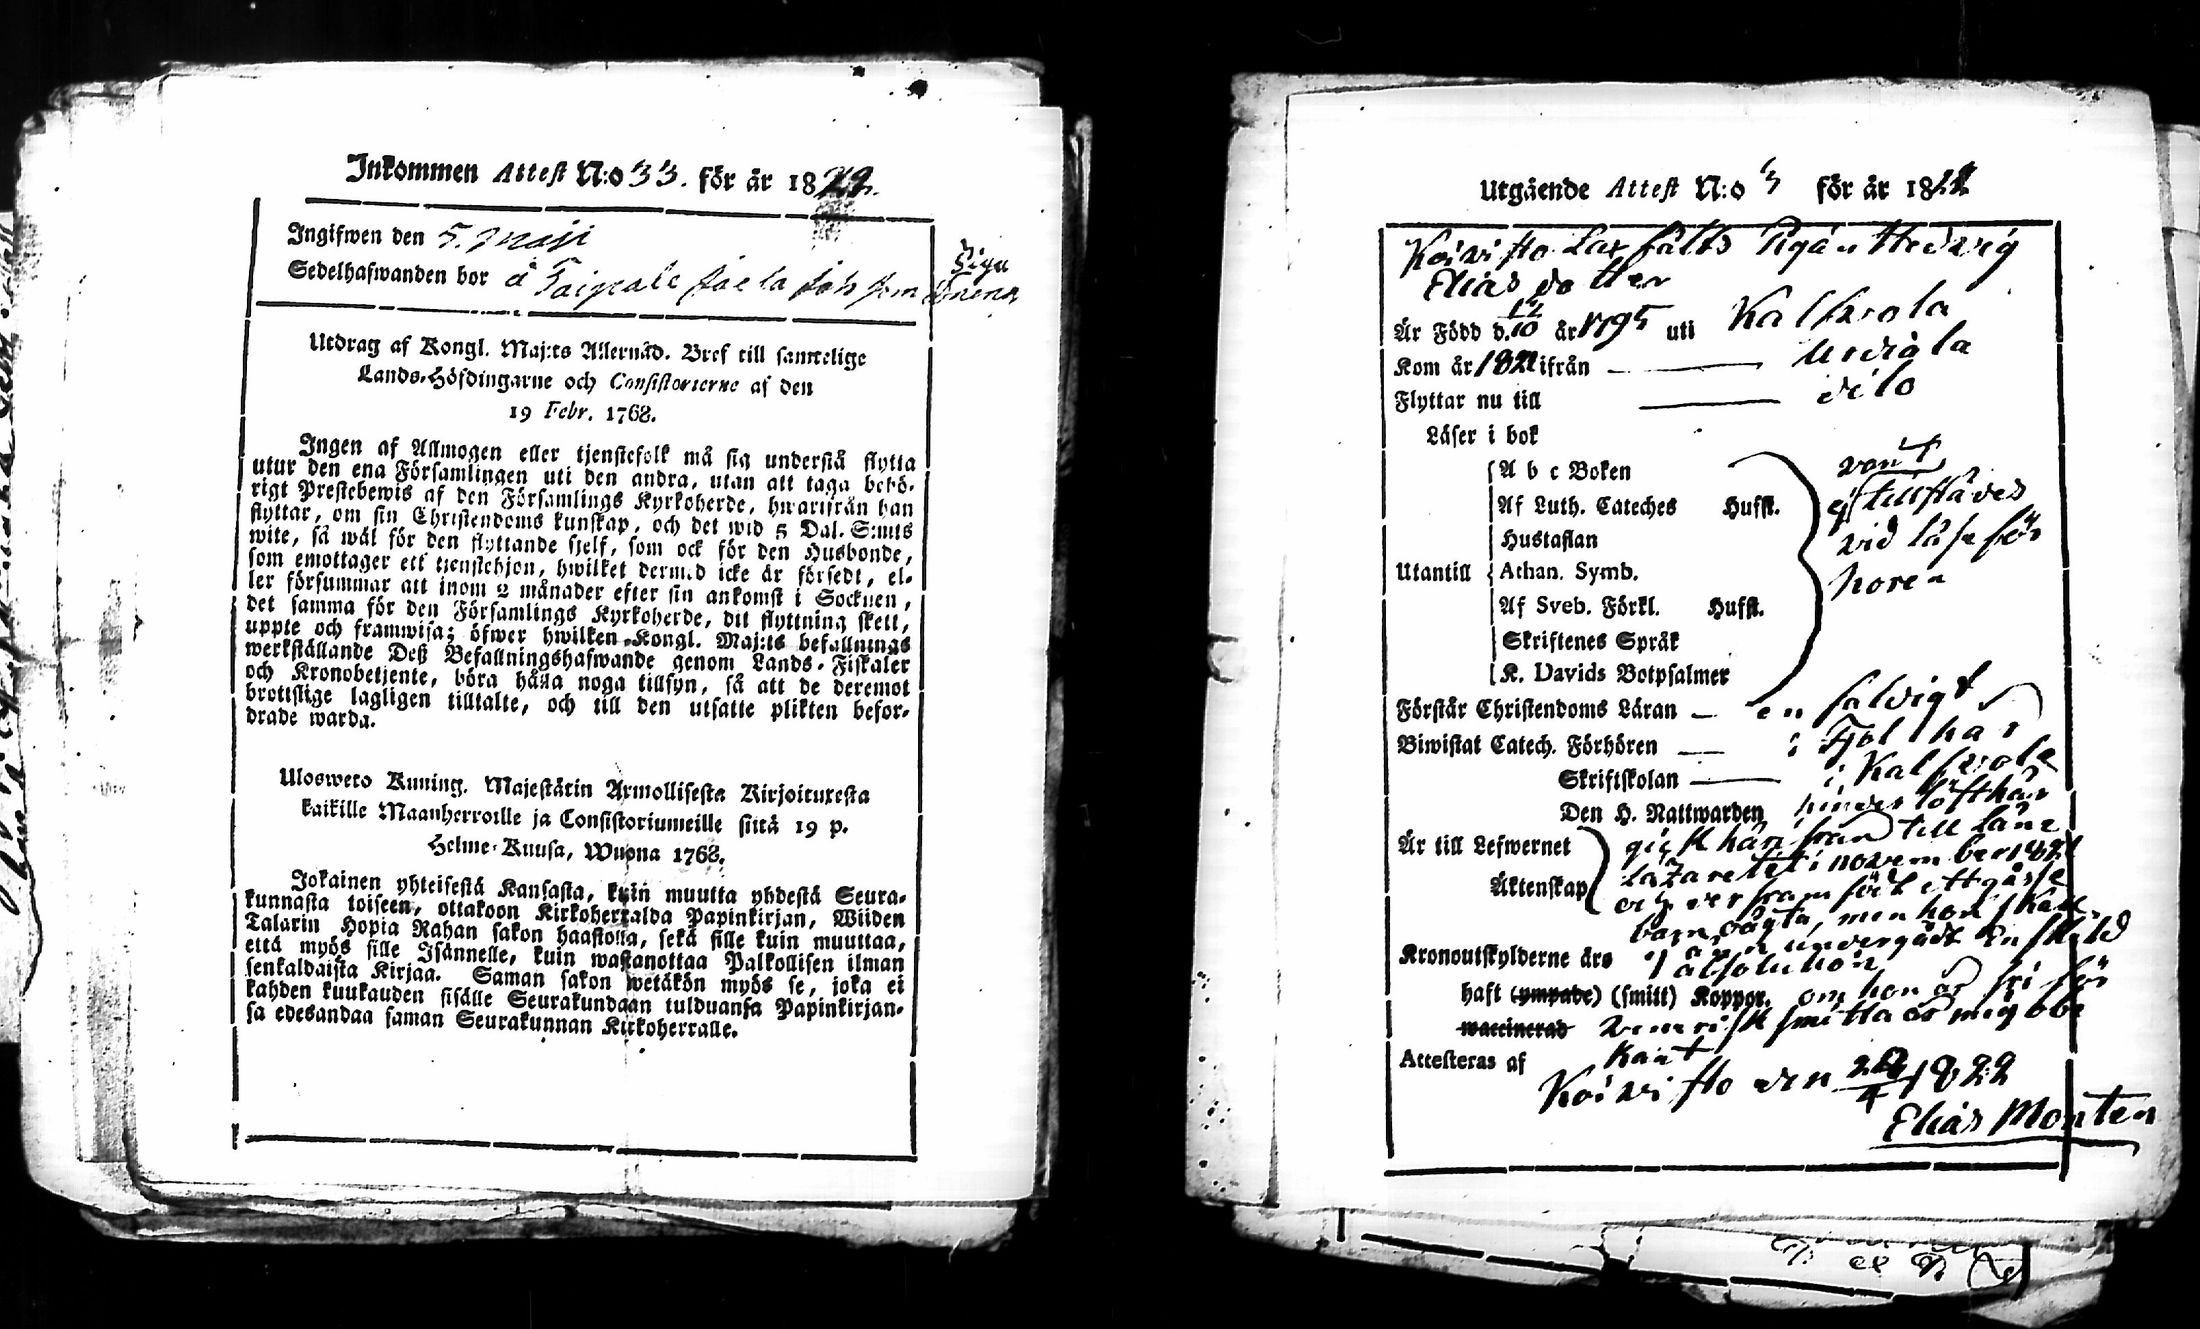 Inkommen Attest N:o 33. för år 1822.
Ingifwen den 5. Maji
Sedelhafwanden bor å Taipale
Utdrag af Kongl. Maj:ts Allernåd. Bref till samtelige
Lands-Höfdingarne och Consistorierne af den
19 Febr. 1768.
Ingen af Allmogen eller tjenstefolk må sig understå flytta
utur den ena Församlingen uti den andra, utan att taga behö-
rigt Prestebewis af den Församlings Kyrkoherde, hwarifrån han
flyttar, om sin Christendoms kunskap, och det wid 5 Dal. S:mts
wite, så wäl för den flyttande sjelf, som ock för den Husbonde,
som emottager ett tjenstehjon, hwilket dermed icke är försedt, el-
ler försummar att inom 2 månader efter sin ankomst i Socknen,
det samma för den Församlings Kyrkoherde, dit flyttning skett,
uppte och framwisa; öfwer hwilken Kongl. Maj:ts befallnings
werkställande Deß Befallningshafwande genom Lands-Fiskaler
och Kronobetjente, böra hålla noga tillsyn, så att de deremot
brottslige lagligen tilltalte, och till den utsatte plikten befor-
drade warda.
Ulosweto Kuning. Majestätin Armollisesta Kirjoituxesta
kaikille Maanherroille ja Consistoriumeille siitä 19 p.
Helme-Kuusa, Wuonna 1768.
Jokainen yhteisestä Kansasta, kuin muutta yhdestä Seura-
kunnasta toiseen, ottakoon Kirkoherralda Papinkirjan, Wiiden
Talarin Hopia Rahan sakon haastolla, sekä sille kuin muuttaa,
että myös sille Isännelle, kuin wastanottaa Palkollisen ilman
senkaldaista Kirjaa. Saman sakon wetäkön myös se, joka ei
kahden kuukauden sisälle Seurakundaan tulduansa Papinkirjan-
sa edesandaa saman Seurakunnan Kirkoherralle.
Utgående Attest N:o 3 för år 1822
Koivisto Lax fälts Pigan Hedvig
Elias dotter
Är Född d. 12/10 år 1795 uti Kalfvola
Kom år 1821 ifrån — Urdiala
Flyttar nu till — dito
Läser i bok
A b c Boken vant
Af Luth. Cateches Husst. ej tillstädes
Hustaflan vid läseför
Utantill Athan. Symb. hören
Af Sveb. Förkl. Husst.
Skriftenes Språk
K. Davids Botpsalmer
Förstår Christendoms Läran — enfaldigt
Biwistat Catech. Förhören — i Fjol här
Skriftskolan — i Kalfvola
Den H. Nattwarden
Är till Lefwernet gick härifrån till Läns
Äktenskap Lazarettet i november 1821
och der framfödt ett oägta
barn, men hon skall
Kronoutskylderne äro undergådt Enskild
absolution,
haft (ympade) (smitt) Koppor. om hon är fri för
waccinerad venerisk smitta är mig obe
Attesteras af kant
Koivisto den 24/4 1822
Elias Monten